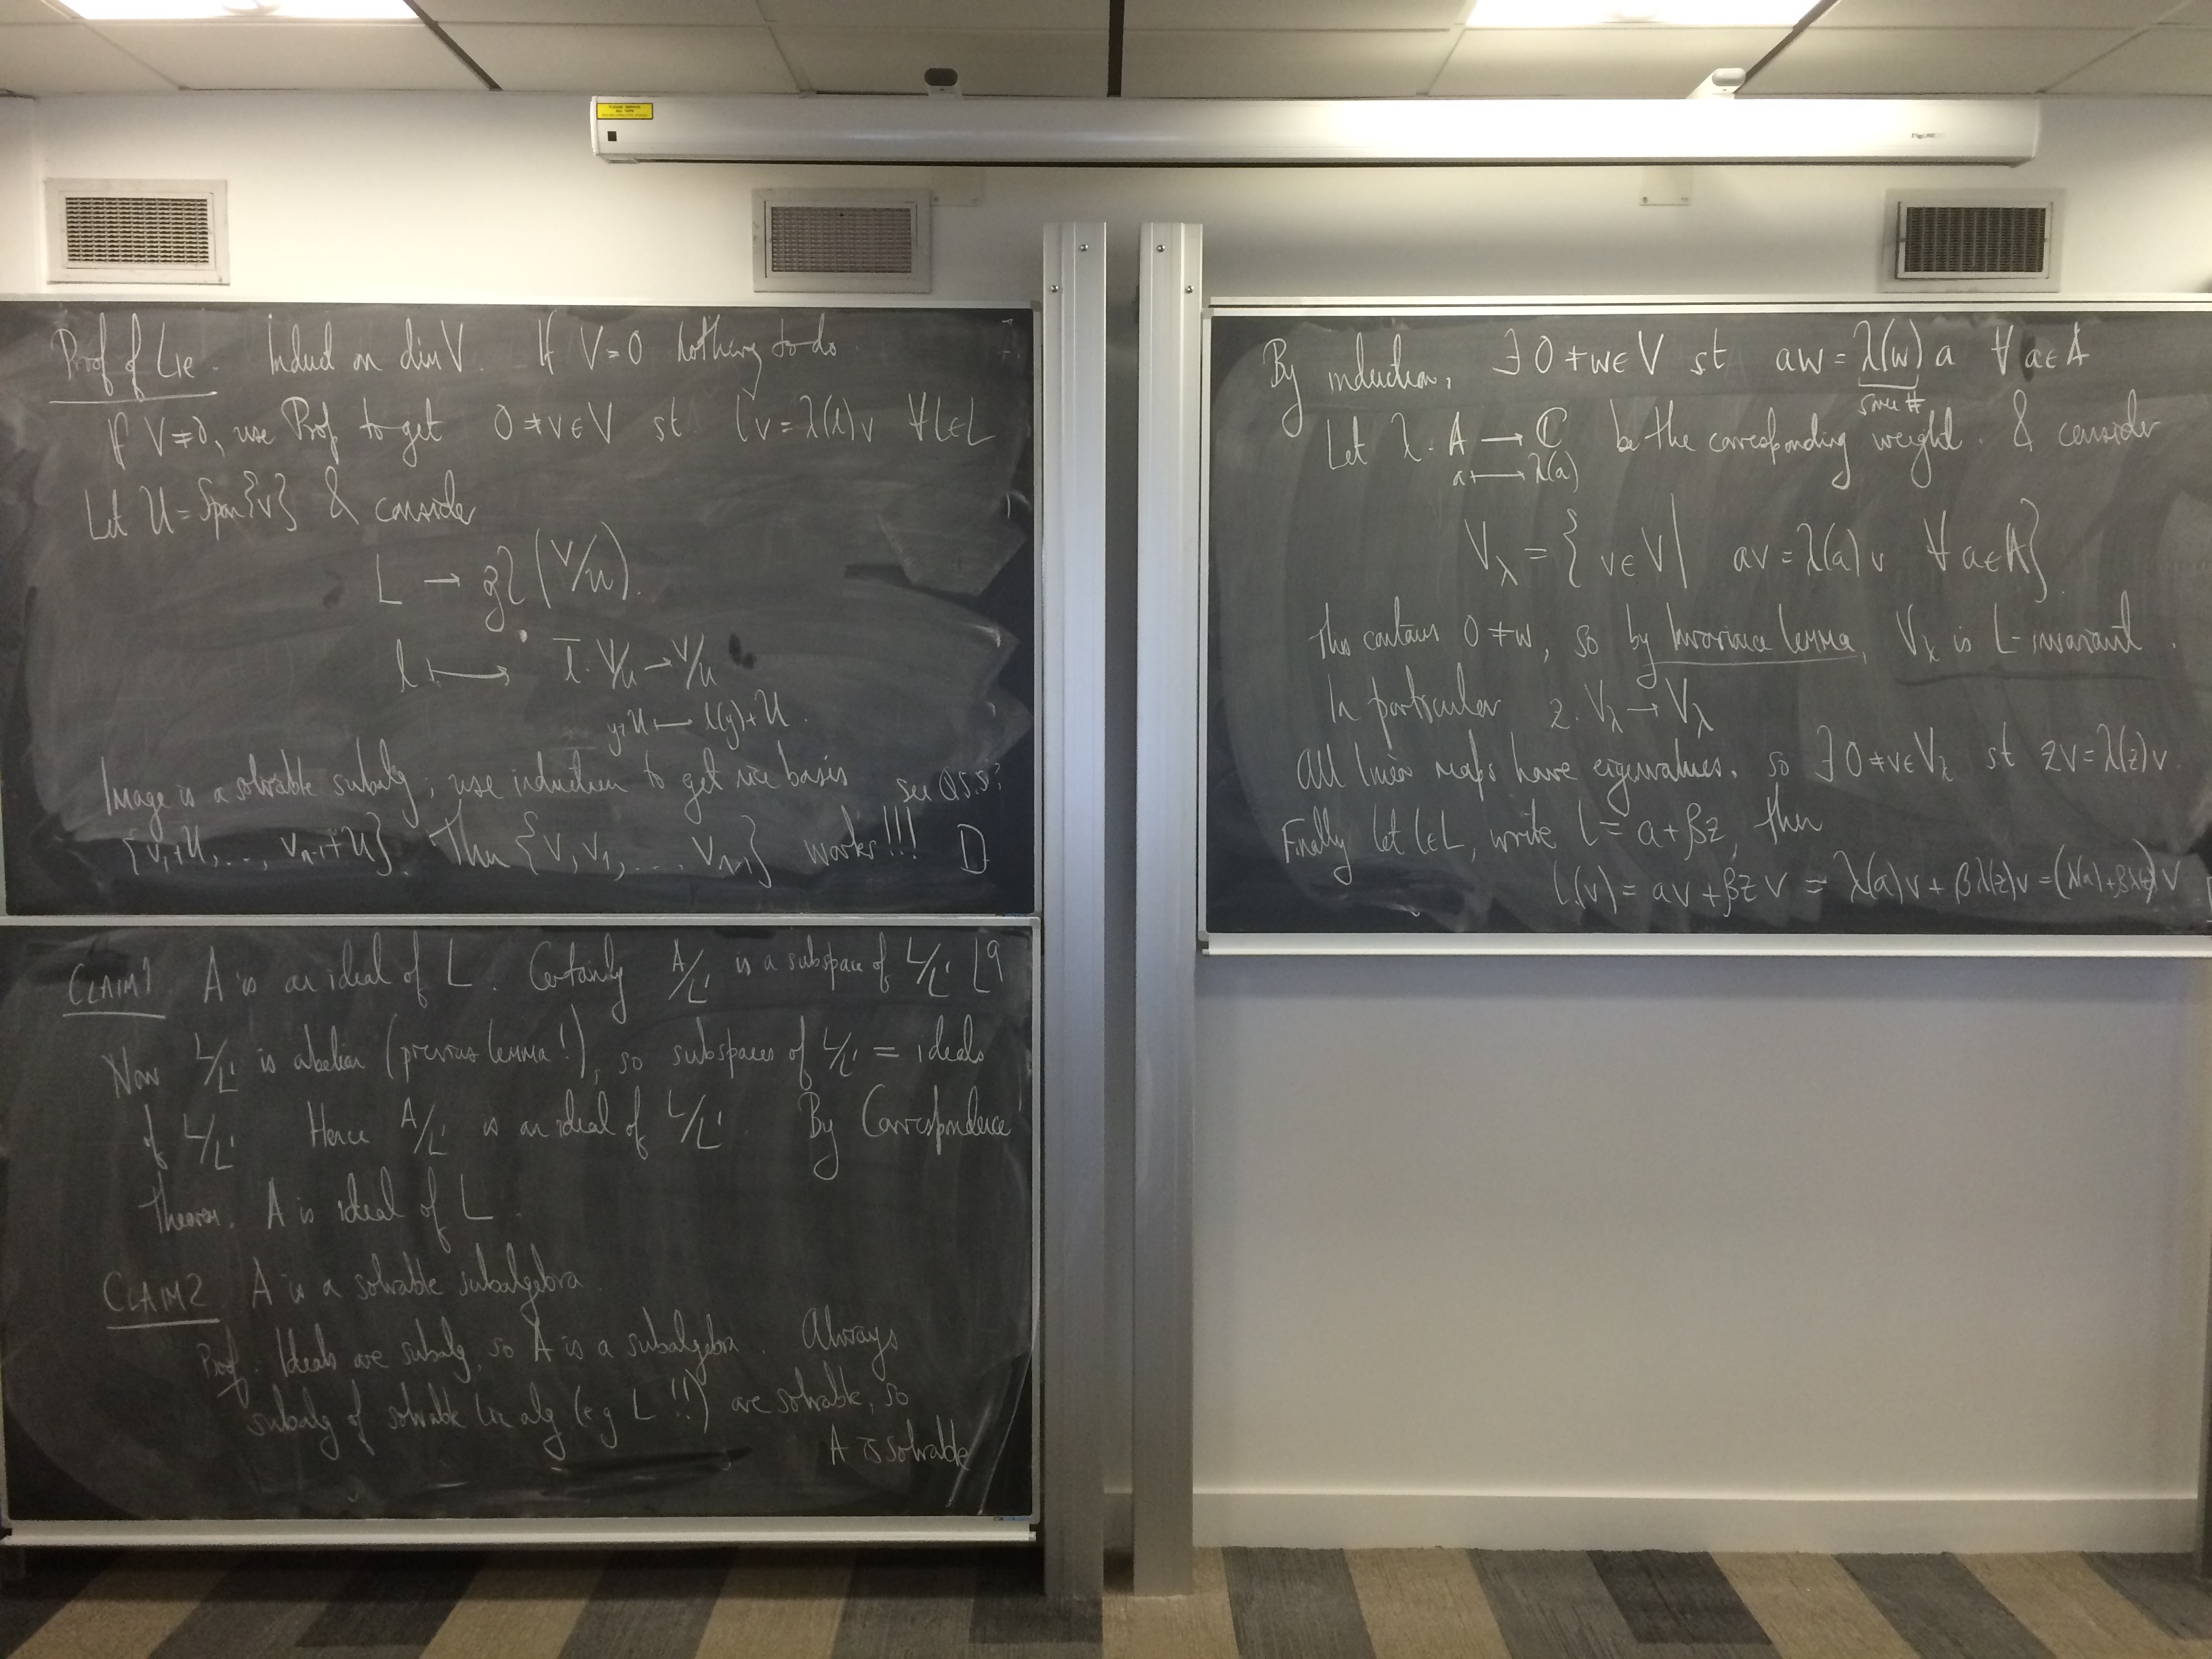 Proof of Lie. Induct on dim V. If V=0 nothing to do
If V≠0, use Prop to get 0≠v∈V st lv=λ(l)v ∀l∈L
Let U=Span{v} & consider
L → gl(V/U).
l ↦ l̄: V/U → V/U
y+U ↦ l(y)+U.
Image is a solvable subalg; use induction to get nice basis see Q5.5?
{v₁+U,..., vₙ₋₁+U}. Then {v, v₁, ... vₙ₋₁} works!!! □
CLAIM 1. A is an ideal of L. Certainly A/L' is a subspace of L/L'
Now L/L' is abelian (previous lemma!), so subspaces of L/L' = ideals
of L/L'. Hence A/L' is an ideal of L/L'. By Correspondence
Theorem, A is ideal of L.
CLAIM 2 A is a solvable subalgebra.
Proof. Ideals are subalg, so A is a subalgebra. Always
subalg of solvable Lie alg (eg L!!) are solvable, so
A is solvable
By induction, ∃ 0≠w∈V st aw=λ(w)a ∀ a∈A
some #
Let λ: A → ℂ be the corresponding weight. & consider
a ↦ λ(a)
V_λ = { v∈V | av=λ(a)v ∀ a∈A}.
This contains 0≠w, so by Invariance lemma, V_λ is L-invariant.
In particular z: V_λ → V_λ
All linear maps have eigenvalues. so ∃ 0≠v∈V_λ st zv=λ(z)v.
Finally let l∈L, write l = a+βz, then
l(v) = av + βzv = λ(a)v + βλ(z)v = (λ(a)+βλ(z))v